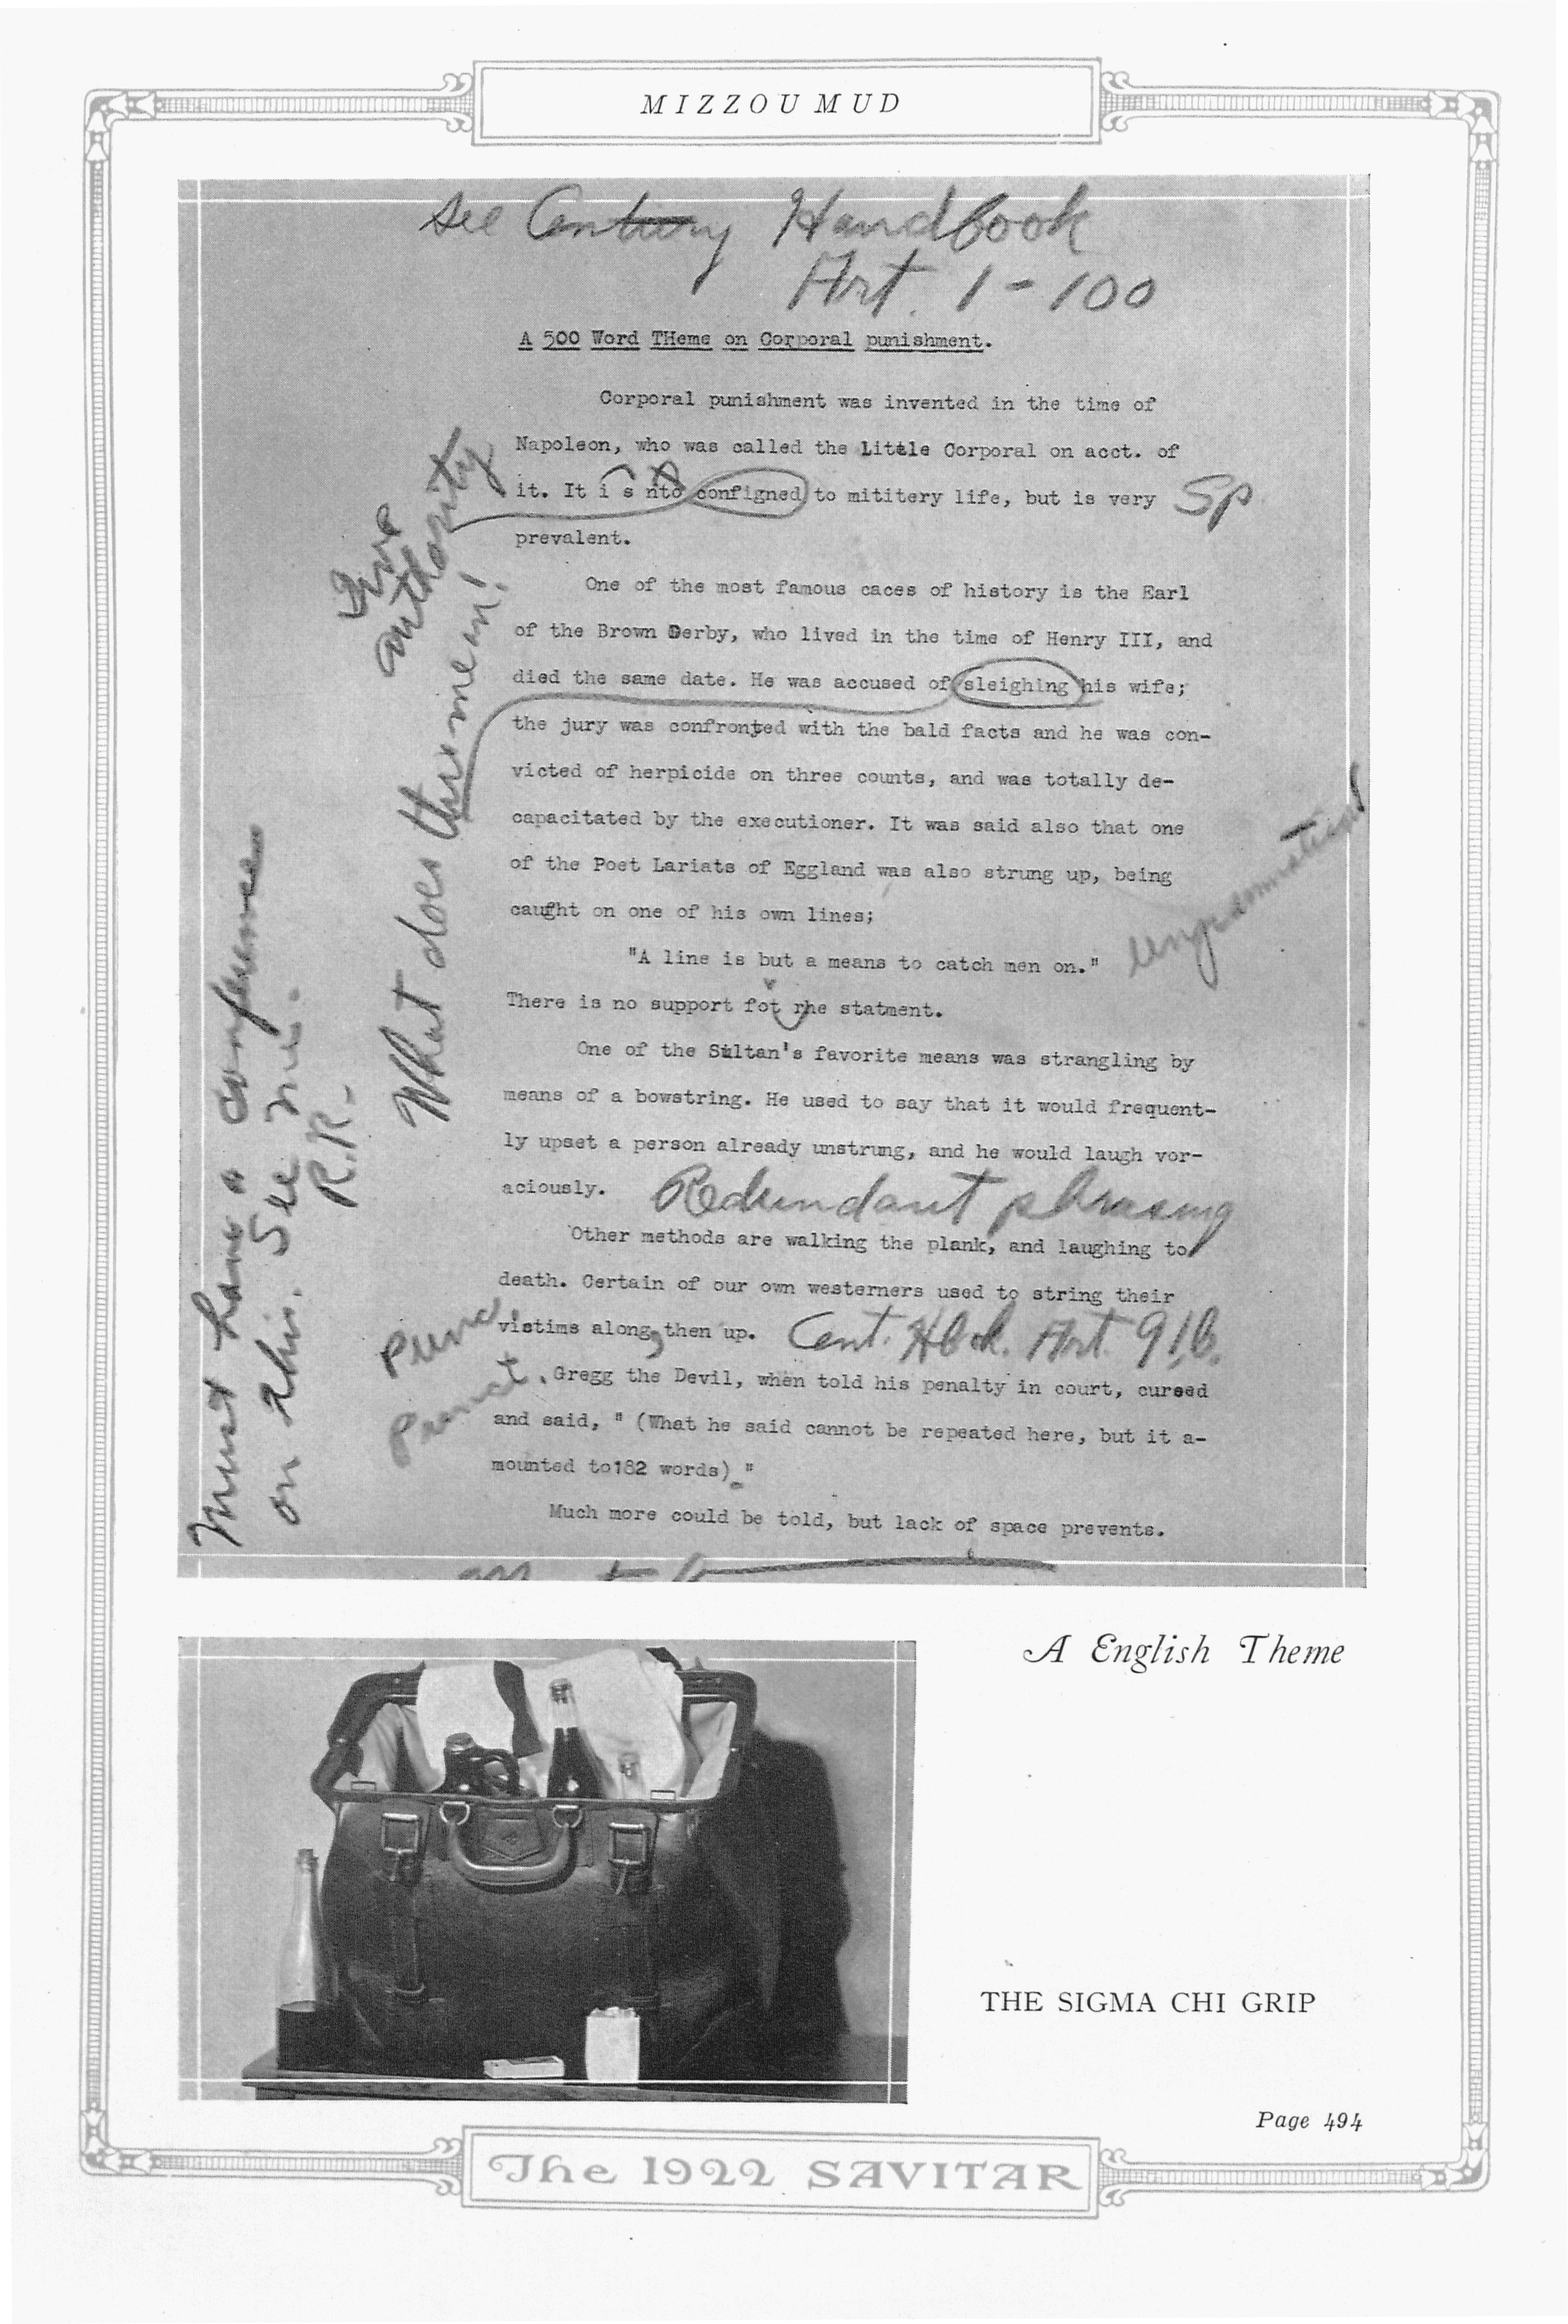 MIZZOU MUD
See Century Handbook
Art. 1-100
A 500 Word THeme on Corporal punishment.
Corporal punishment was invented in the time of
Napoleon, who was called the Little Corporal on acct. of
it. It i s nto configned to mititery life, but is very
Sp
prevalent.
Give
authority
One of the most famous caces of history is the Earl
of the Brown Derby, who lived in the time of Henry III, and
died the same date. He was accused of sleighing his wife;
the jury was confronted with the bald facts and he was con-
victed of herpicide on three counts, and was totally de-
capacitated by the executioner. It was said also that one
of the Poet Lariats of Eggland was also strung up, being
caught on one of his own lines;
What does this mean!
"A line is but a means to catch men on."
Ungrammatical
There is no support fot rhe statment.
One of the Sultan's favorite means was strangling by
means of a bowstring. He used to say that it would frequent-
ly upset a person already unstrung, and he would laugh vor-
aciously.
Redundant phrasing
Must have a conference
on this. See me.
R.R.
Other methods are walking the plank, and laughing to
death. Certain of our own westerners used to string their
victims along, then up.
Cent. Hbk. Art. 91,b.
Punct.
Punct.
Gregg the Devil, when told his penalty in court, cursed
and said, " (What he said cannot be repeated here, but it a-
mounted to182 words)."
Much more could be told, but lack of space prevents.
A English Theme
THE SIGMA CHI GRIP
Page 494
The 1922 SAVITAR